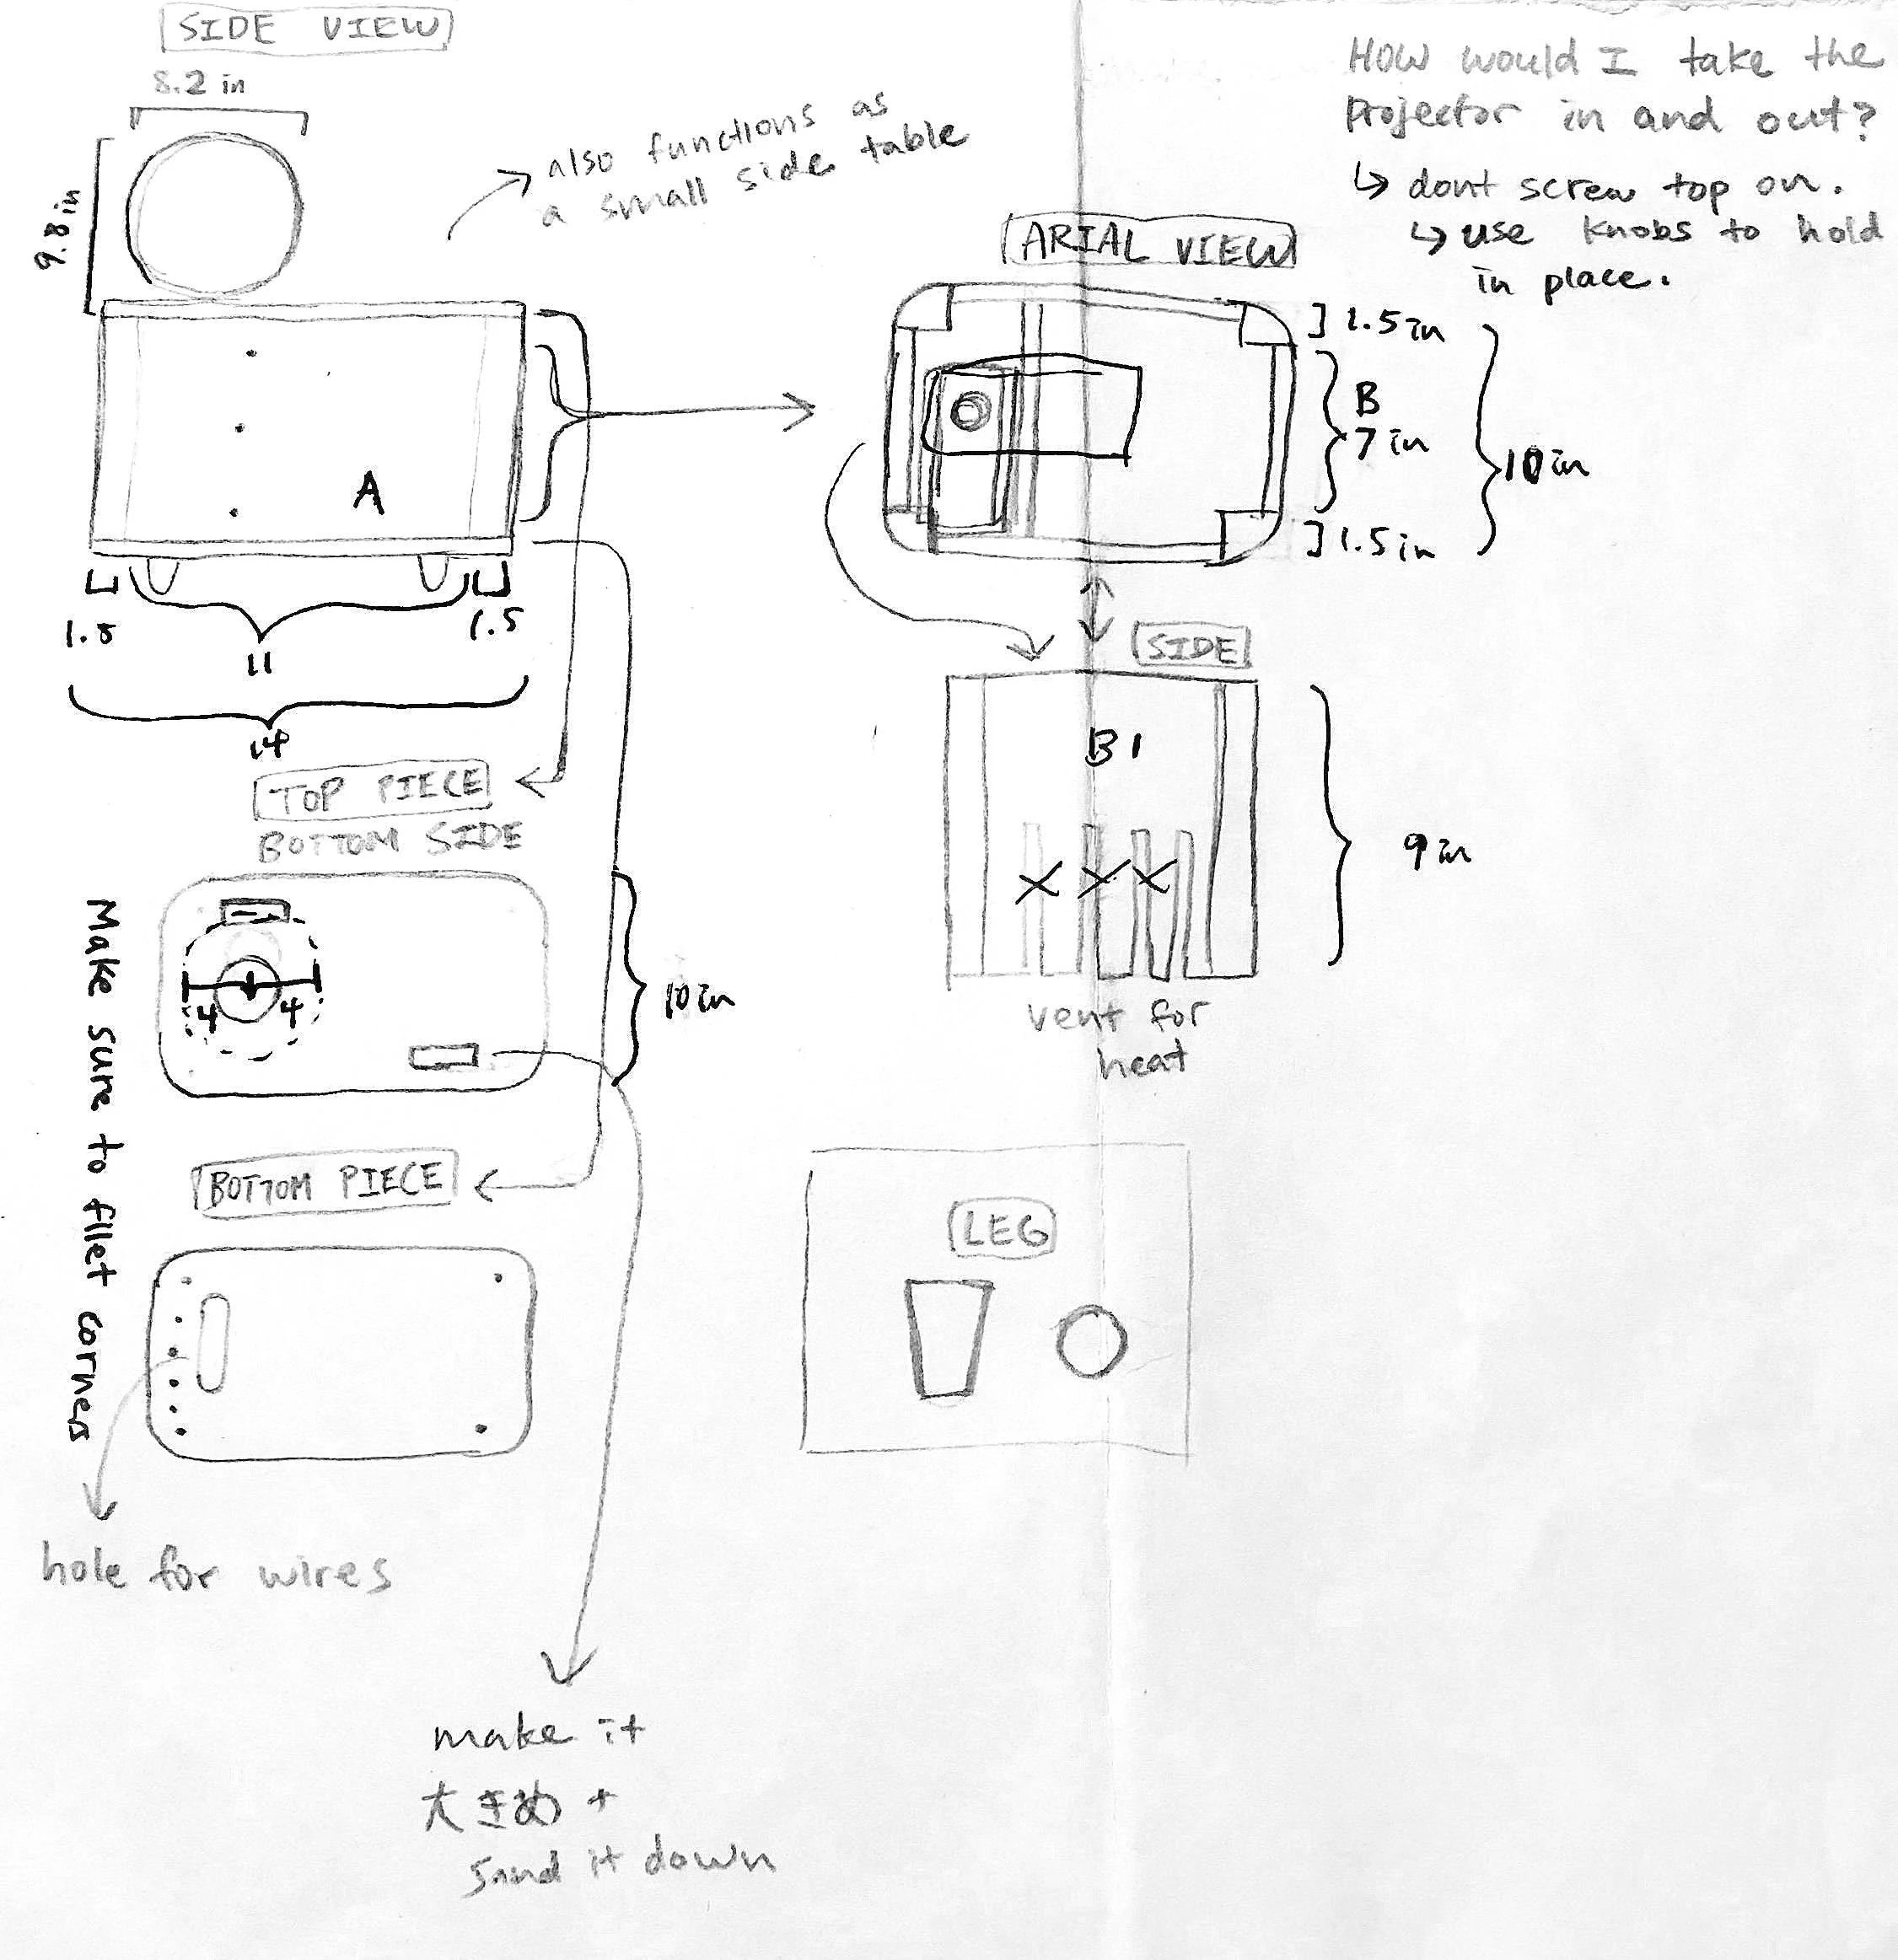 SIDE VIEW
8.2 in
9.8 in
also functions as
a small side table
A
1.5
11
1.5
14
HOW would I take the
Projector in and out?
↳ dont screw top on.
↳ use knobs to hold
in place.
ARIAL VIEW
1.5 in
B
7 in
1.5 in
10 in
SIDE
B1
9 in
vent for
heat
TOP PIECE
BOTTOM SIDE
4 4
10 in
Make sure to fllet corners
BOTTOM PIECE
hole for wires
LEG
make it
大きめ +
sand it down